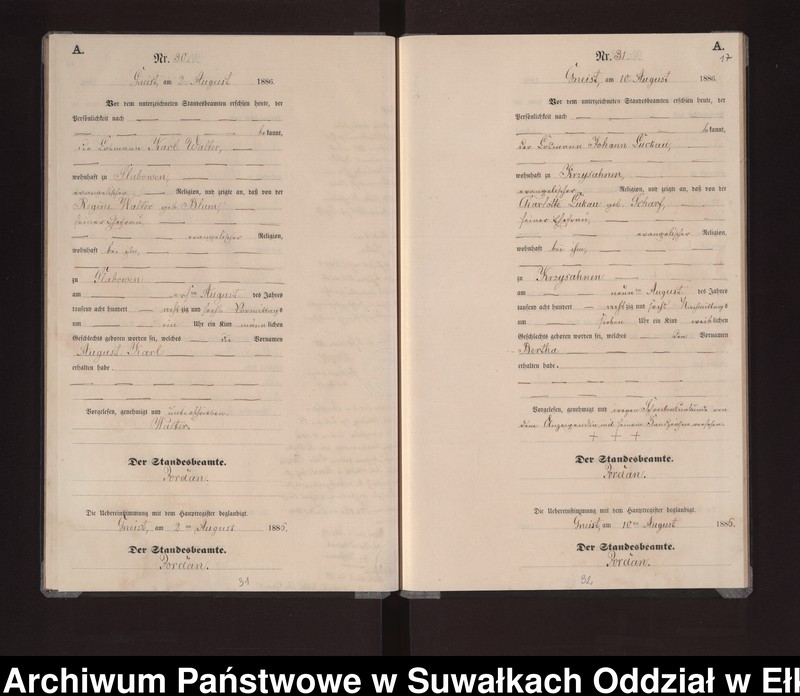 A.
Nr. 30
Gneist, am 2. August 1886.
Vor dem unterzeichneten Standesbeamten erschien heute, der
Persönlichkeit nach
bekannt,
der Losmann Karl Walter,
wohnhaft zu Slabowen,
evangelischer Religion, und zeigte an, daß von der
Regine Walter geb. Blum,
seiner Ehefrau,
evangelischer Religion,
wohnhaft bei ihm,
zu Slabowen
am ersten August des Jahres
tausend acht hundert achtzig und sechs Vormittags
um ein Uhr ein Kind männlichen
Geschlechts geboren worden sei, welches die Vornamen
August Karl
erhalten habe.
Vorgelesen, genehmigt und unterschrieben
Walter.
Der Standesbeamte.
Jordan.
Die Uebereinstimmung mit dem Hauptregister beglaubigt.
Gneist, am 2ten August 1886.
Der Standesbeamte.
Jordan.
31
A.
17
Nr. 31
Gneist, am 10. August 1886.
Vor dem unterzeichneten Standesbeamten erschien heute, der
Persönlichkeit nach
bekannt,
der Losmann Johann Luckau,
wohnhaft zu Krzysahnen,
evangelischer Religion, und zeigte an, daß von der
Charlotte Lukau geb. Scharf,
seiner Ehefrau,
evangelischer Religion,
wohnhaft bei ihm,
zu Krzysahnen
am neunten August des Jahres
tausend acht hundert achtzig und sechs Nachmittags
um sieben Uhr ein Kind weiblichen
Geschlechts geboren worden sei, welches den Vornamen
Bertha
erhalten habe.
Vorgelesen, genehmigt und wegen Schreibensunkunde von
dem Anzeigenden mit seinem Handzeichen versehen.
+ + +
Der Standesbeamte.
Jordan.
Die Uebereinstimmung mit dem Hauptregister beglaubigt.
Gneist, am 10ten August 1886.
Der Standesbeamte.
Jordan.
32
Archiwum Państwowe w Suwałkach Oddział w Ełk